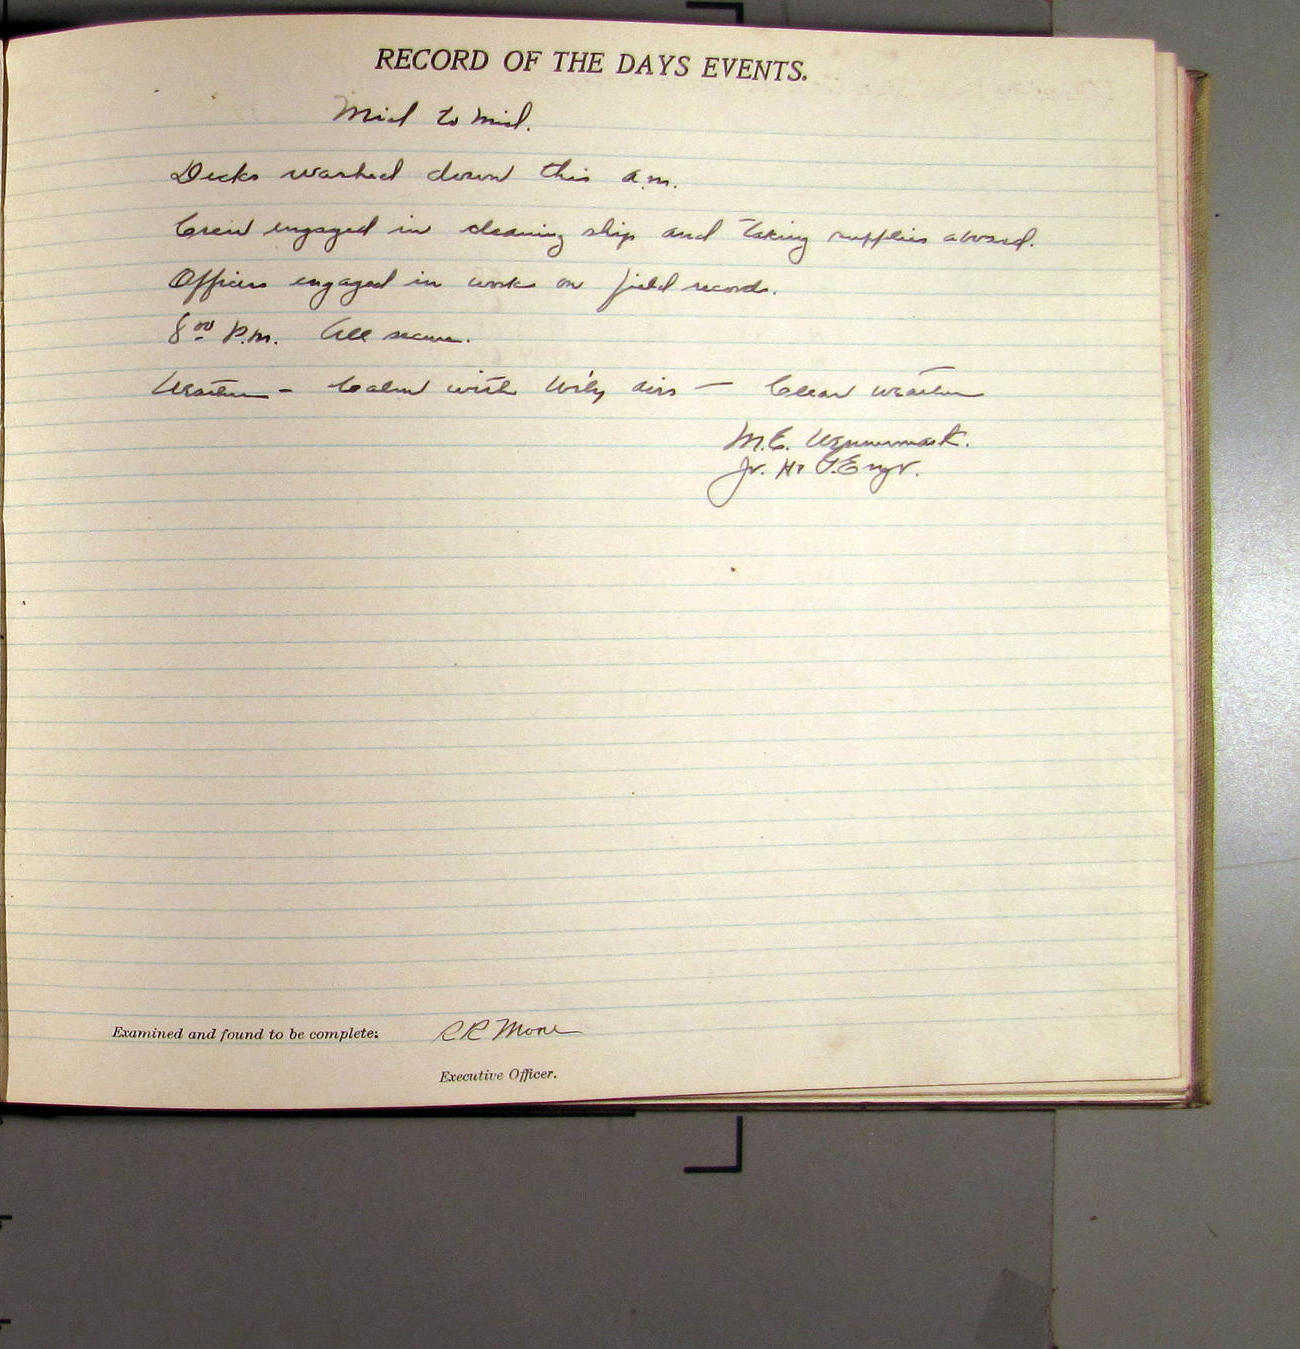 RECORD OF THE DAYS EVENTS.
Mid to Mid.
Decks washed down this a.m.
Crew engaged in cleaning ship and taking supplies aboard.
Officers engaged in work on field records.
8 00 P.m. All secure.
Weather - Calm with W'ly airs - Clear weather
M.E. Wennermark.
Jr. H. & G. Engr.
Examined and found to be complete: R R Moore
Executive Officer.